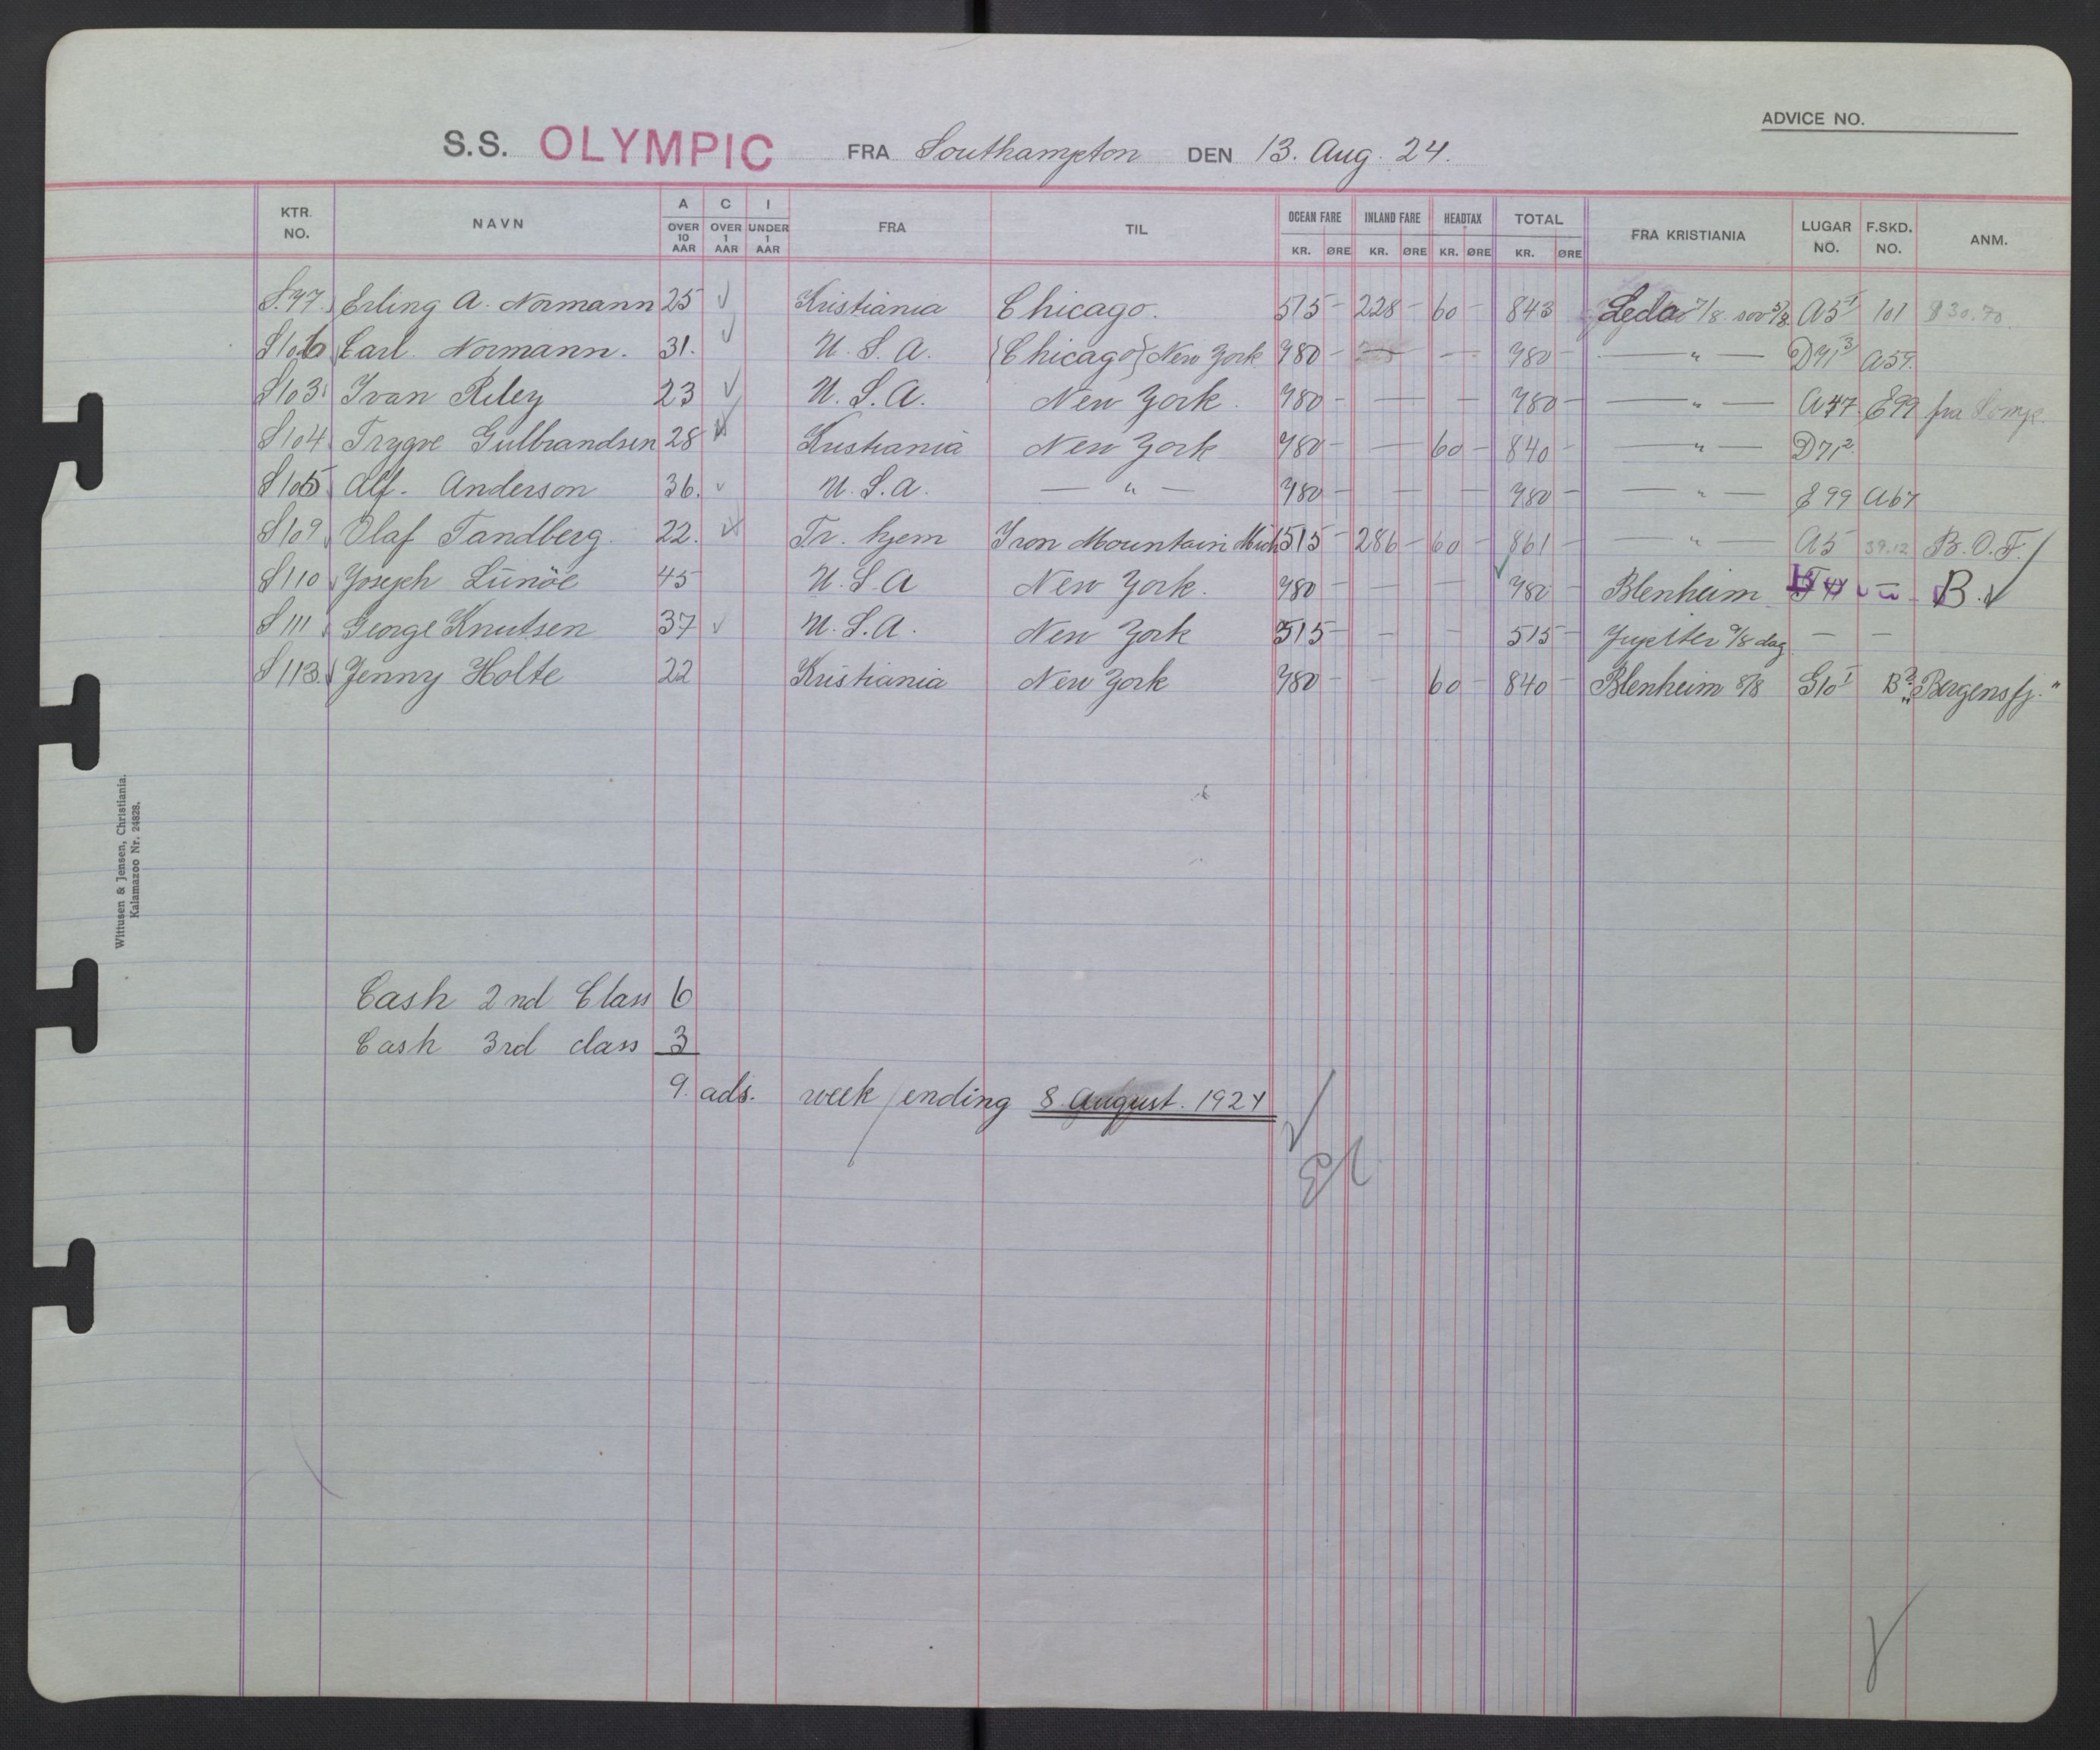 ADVICE NO.
S.S. OLYMPIC FRA Southampton DEN 13. Aug. 24.
KTR. NO. NAVN A OVER 10 AAR C OVER 1 AAR I UNDER 1 AAR FRA TIL OCEAN FARE KR. ØRE INLAND FARE KR. ØRE HEADTAX KR. ØRE TOTAL KR. ØRE FRA KRISTIANIA LUGAR NO. F.SKD. NO. ANM.
Erling A. Normann 25 Kristiania Chicago. 515 - 228 - 60 - 843 Leda 7/8 A5 101 830.70
S106 Carl Normann. 31. U.S.A. (Chicago) New York 780 - — — 780 - — " — D71 3 A59.
S103 Ivan Riley 23 U.S.A. New York. 780 - — — 780 - — " — A47 E99 fra
S104 Trygve Gulbrandsen 28 Kristiania New York 780 - — 60 - 840 - — " — D71 2
S105 Alf. Anderson 36. U.S.A. — " — 780 - — — 780 - — " — E99 A67
S109 Olaf Tandberg. 22. Tr. hjem Iron Mountain Mich 515 - 286 - 60 - 861 - — " — A5 39.12 B.O.F.
S110 Joseph 45 U.S.A New York. 780 - — — 780 - Blenheim B.
S111 George Knutsen 37 U.S.A. New York 515 - — — 515 - Jupiter 9/8 dag — —
S113. Jenny Holte 22 Kristiania New York 780 - - 60 - 840 - Blenheim 8/8 G10 I B? "Bergensfj."
Wittusen & Jensen, Christiania.
Kalamazoo Nr. 24828.
Cash 2nd Class 6
Cash 3rd class 3
9. ads. week ending 8 August. 1924